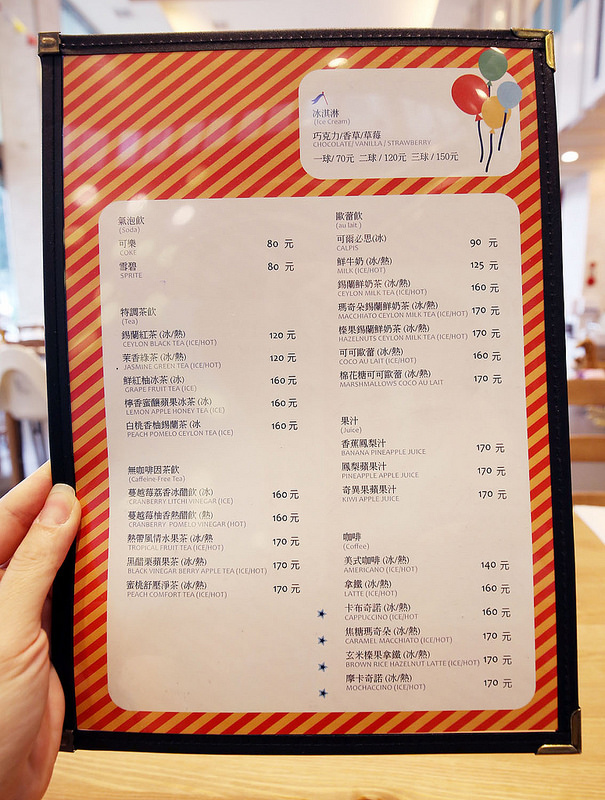 冰淇淋
(Ice Cream)
巧克力/香草/草莓
CHOCOLATE/ VANILLA / STRAWBERRY
一球/ 70元 二球 / 120元 三球 / 150元
氣泡飲
(Soda)
可樂 80 元
COKE
雪碧 80 元
SPRITE
特調茶飲
(Tea)
錫蘭紅茶 (冰/熱) 120 元
CEYLON BLACK TEA (ICE/HOT)
茉香綠茶 (冰/熱) 120 元
JASMINE GREEN TEA (ICE/HOT)
鮮紅柚冰茶 (冰) 160 元
GRAPE FRUIT TEA (ICE)
檸香蜜釀蘋果冰茶 (冰) 160 元
LEMON APPLE HONEY TEA (ICE)
白桃香柚錫蘭茶 (冰 160 元
PEACH POMELO CEYLON TEA (ICE)
無咖啡因茶飲
(Caffeine-Free Tea)
蔓越莓荔香冰醋飲 (冰) 160 元
CRANBERRY LITCHI VINEGAR (ICE)
蔓越莓柚香熱醋飲 (熱) 160 元
CRANBERRY POMELO VINEGAR (HOT)
熱帶風情水果茶 (冰/熱 170 元
TROPICAL FRUIT TEA (ICE/HOT)
黑醋栗蘋果茶 (冰/熱) 170 元
BLACK VINEGAR BERRY APPLE TEA (ICE/HOT)
蜜桃舒壓淨茶 (冰/熱) 170 元
PEACH COMFORT TEA (ICE/HOT)
歐蕾飲
(au lait )
可爾必思(冰) 90 元
CALPIS
鮮牛奶 (冰/熱) 125 元
MILK (ICE/HOT)
錫蘭鮮奶茶 (冰/熱) 160 元
CEYLON MILK TEA (ICE/HOT)
瑪奇朵錫蘭鮮奶茶 (冰/熱) 170 元
MACCHIATO CEYLON MILK TEA (ICE/HOT)
榛果錫蘭鮮奶茶 (冰/熱) 170 元
HAZELNUTS CEYLON MILK TEA (ICE/HOT)
可可歐蕾 (冰/熱) 160 元
COCO AU LAIT (ICE/HOT)
棉花糖可可歐蕾 (冰/熱) 170 元
MARSHMALLOWS COCO AU LAIT
果汁
(Juice)
香蕉鳳梨汁 170 元
BANANA PINEAPPLE JUICE
鳳梨蘋果汁 170 元
PINEAPPLE APPLE JUICE
奇異果蘋果汁 170 元
KIWI APPLE JUICE
咖啡
(Coffee)
美式咖啡 (冰/熱) 140 元
AMERICANO (ICE/HOT)
拿鐵 (冰/熱) 160 元
LATTE (ICE/HOT)
卡布奇諾 (冰/熱) 160 元
CAPPUCCINO (ICE/HOT)
焦糖瑪奇朵 (冰/熱) 170 元
CARAMEL MACCHIATO (ICE/HOT)
玄米榛果拿鐵 (冰/熱) 170 元
BROWN RICE HAZELNUT LATTE (ICE/HOT)
摩卡奇諾 (冰/熱) 170 元
MOCHACCINO (ICE/HOT)